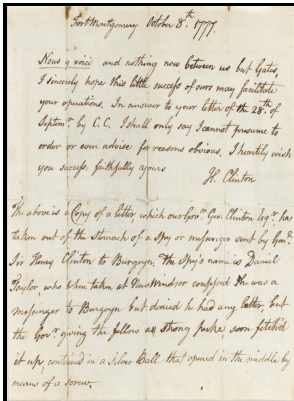 Fort Montgomery October 8th. 1777.
Nous y voici and nothing now between us but Gates,
I sincerely hope this little success of ours may facilitate
your operations. In answer to your letter of the 28th. of
Septemr. by C.C. I shall only say I cannot presume to
order or even advise for reasons obvious. I heartily wish
you success, faithfully yours
H. Clinton
The above is a Copy of a letter, which our Govr. Geo. Clinton Esqr. has
taken out of the Stomach of a Spy or messenger sent by Genl.
Sir Henry Clinton to Burgoyn, The Spy's name is Daniel
Taylor, who when taken at New Windsor confessed he was a
messenger to Burgoyn but denied he had any letter, but
the Govr. giving the fellow a strong puke, soon fetch'd
it up, contained in a Silver Ball that opened in the middle by
means of a screw.